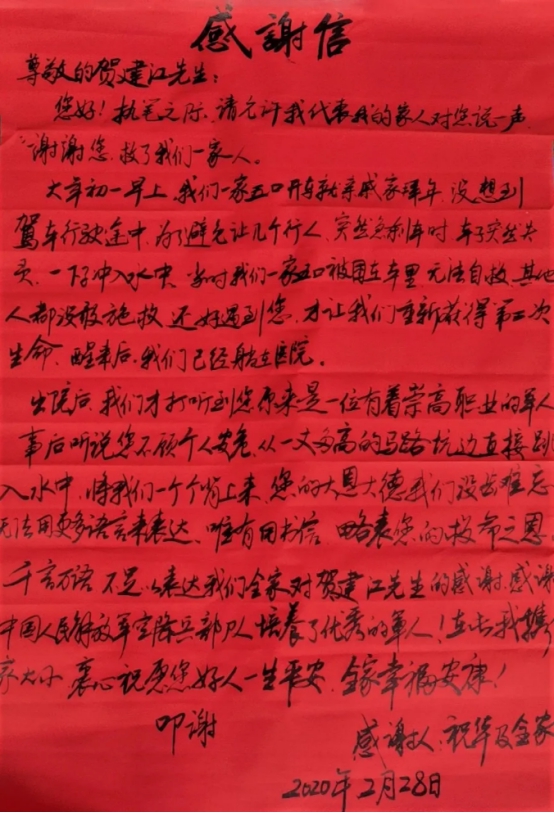 感謝信
尊敬的贺建江先生：
您好！执笔之际，请允许我代表我的家人对您说一声
“谢谢您，救了我们一家人。
大年初一早上，我们一家五口开车就亲戚家拜年，没想到
驾车行驶途中，为了避免让几个行人，突然急刹车时，车子突然失
灵，一下子冲入水中，当时我们一家五口被困在车里，无法自救，其他
人都没敢施救，还好遇到您，才让我们重新获得第二次
生命，醒来后，我们已经躺在医院。
出院后，我们才打听到您原来是一位有着崇高职业的军人
事后听说您不顾个人安危，从一丈多高的马路坑边直接跳
入水中，将我们一个个背上来，您的大恩大德我们没齿难忘
无法用更多语言来表达，唯有用书信，略表您的救命之恩。
千言万语不足以表达我们全家对贺建江先生的感谢，感谢
中国人民解放军空降兵部队培养了优秀的军人！在此我携
家大小，衷心祝愿您好人一生平安，全家幸福安康！
叩谢
感谢人：祝华及全家
2020年2月28日